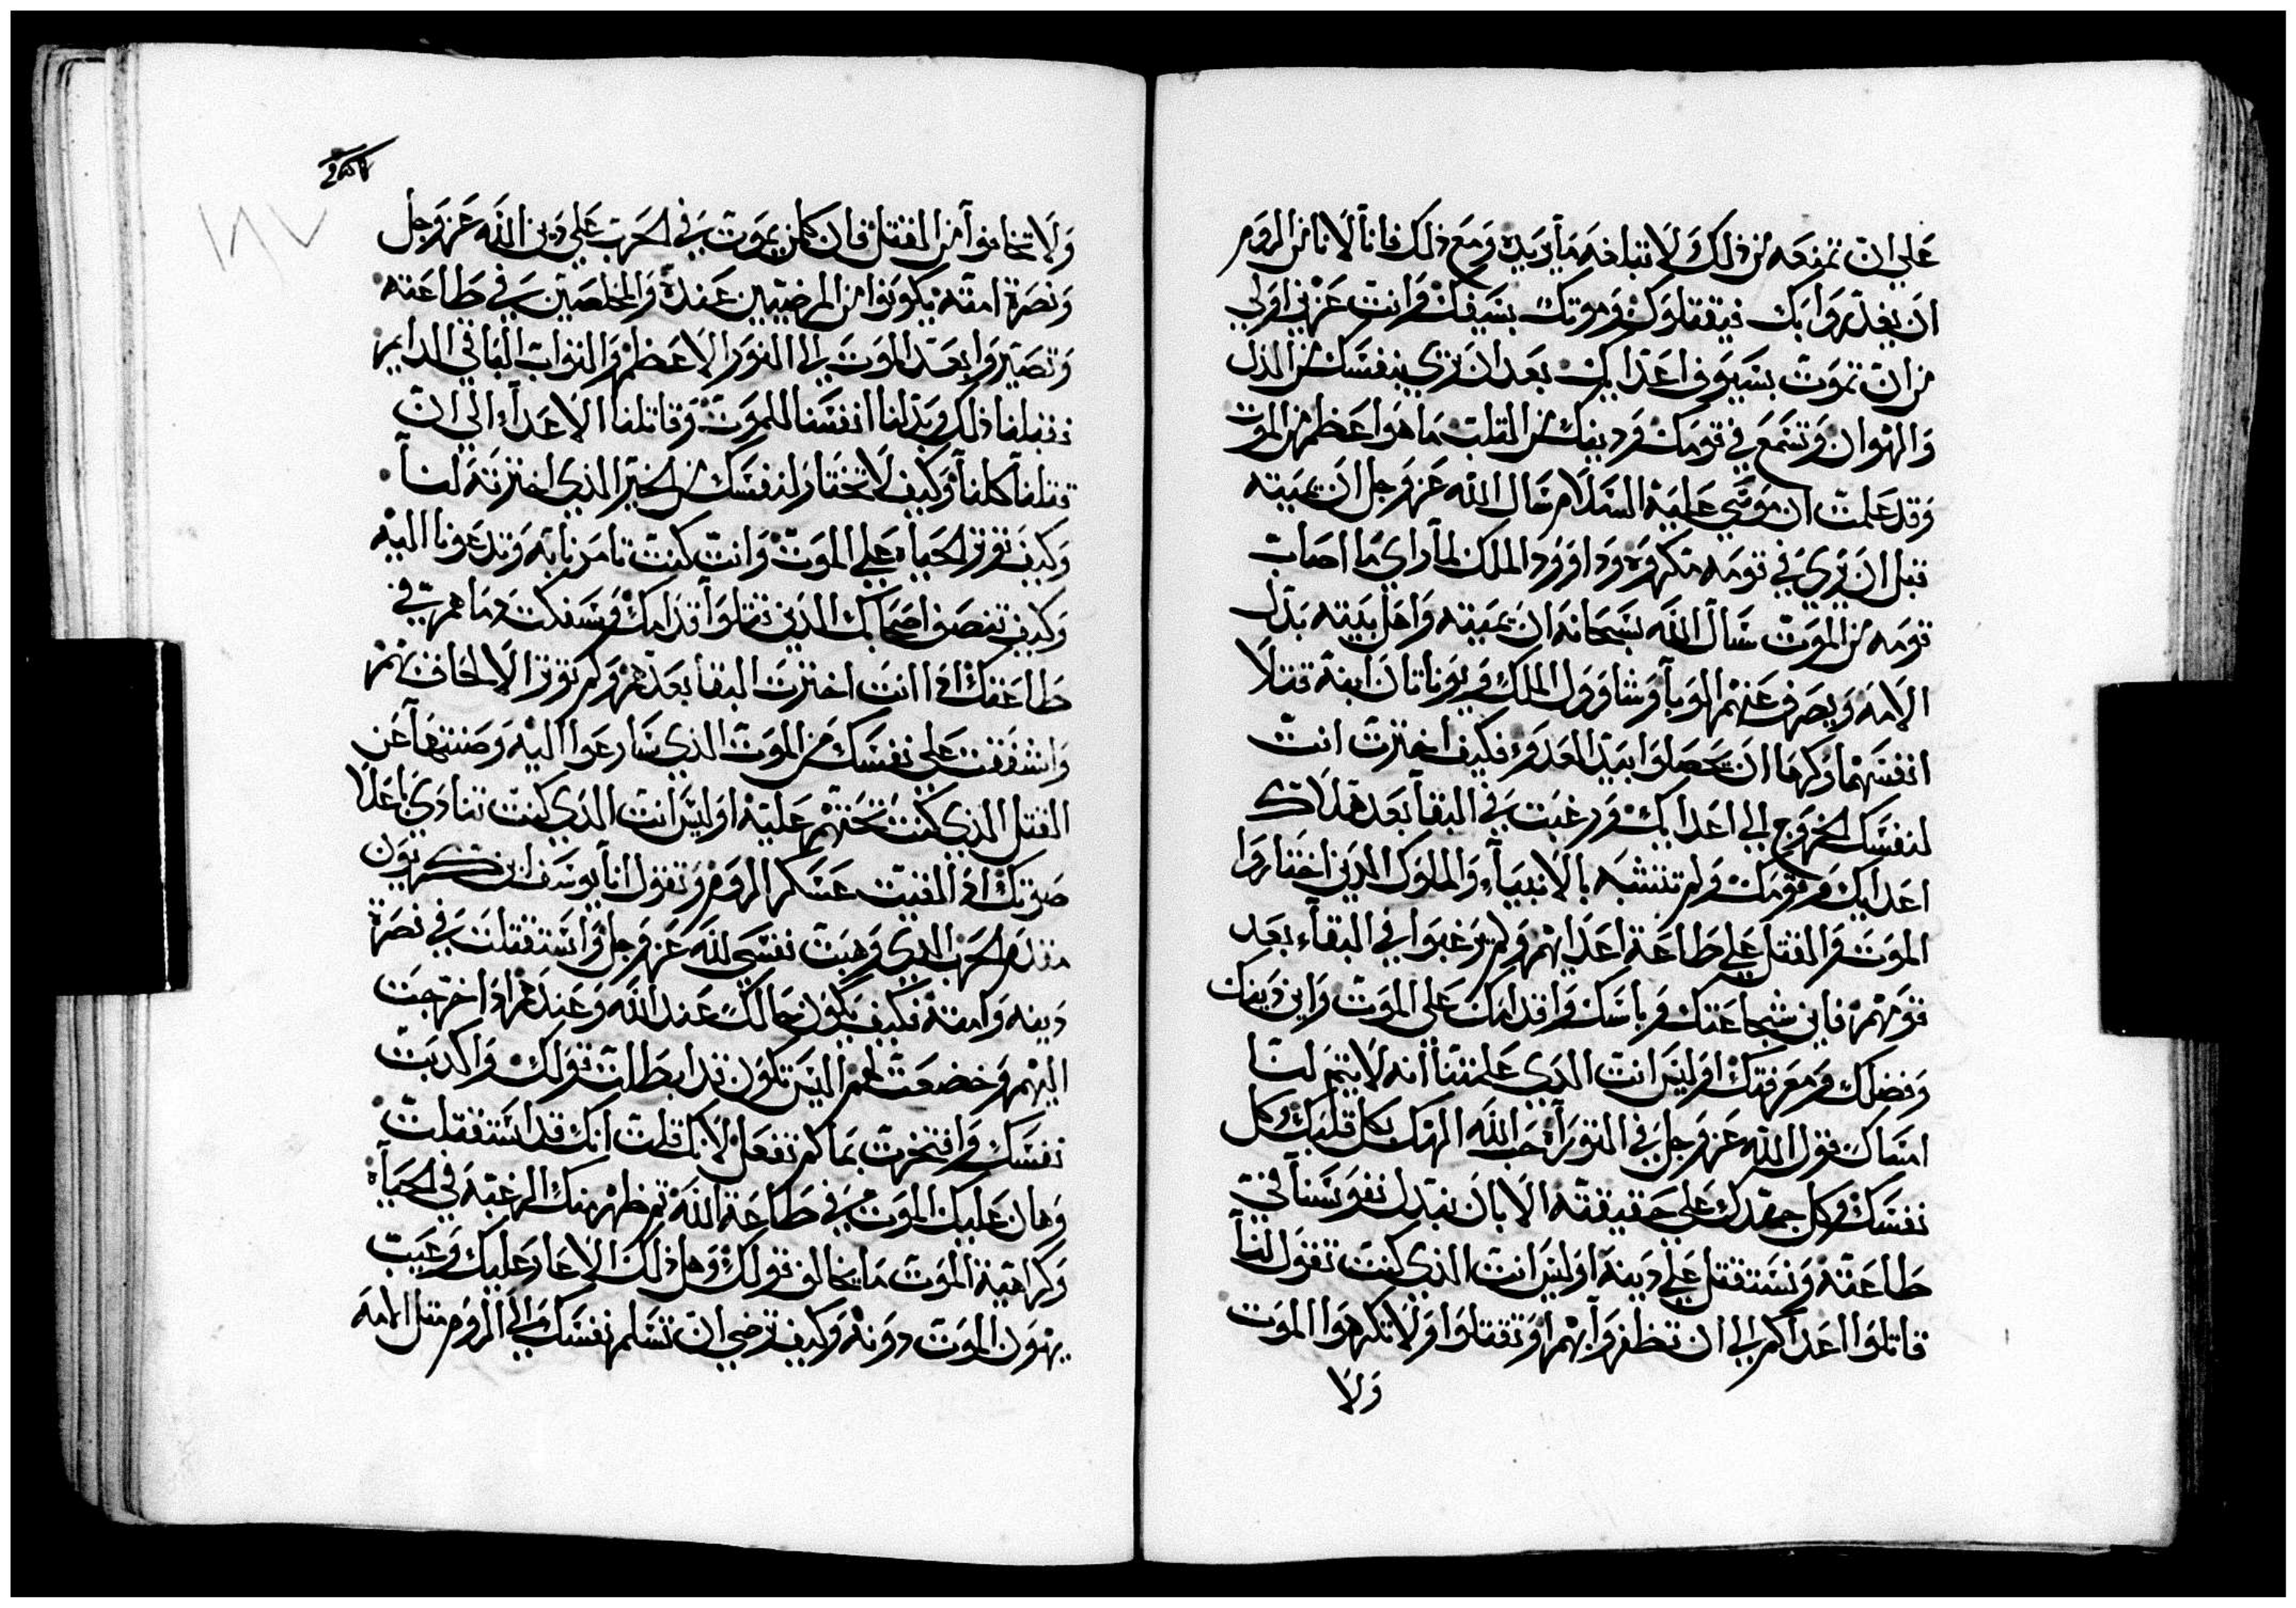 علي ان تمنعه من ذلك ولا تبلغه ما يريده ومع ذلك فانا لا نامن الروم
ان يغدروا بك فيقتلوك وموتك بسيفك وانت عزيز اولي
من ان تموت بسيوف اعدايك بعد ان تري بنفسك من الذل
والهوان وتسمع في قومك ودينك من الثلب ما هو اعظم من الموت
وقد علمت ان موسي عليه السلام سال الله عز وجل ان يميته
قبل ان يري في قومه مكروه وداوود الملك لما راي ما اصاب
قومه من الموت سال الله سبحانه ان يميته واهل بيته بدل
الامه ويصرف عنهم الوبا وشاوول الملك ويوناتان ابنه قتلا
انفسهما وكرها ان يحصلوا بيد العدو فكيف اخترت انت
لنفسك الخروج الي اعدايك ورغبت في البقا بعد هلاك
اعدايك وقومك ولم تتشبه بالانبيآء والملوك الذين اختاروا
الموت والقتل علي طاعة اعدايهم ولم يرغبوا في البقآء بعد
قومهم فاين شجاعتك وباسك واقدامك علي الموت واين دينك
وفضلك ومعرفتك اوليس انت الذي علمتنا انه لا يتم لنا
امتثال قول الله عز وجل في التوراة حب الله الهك بكل قلبك وكل
نفسك وكل جهدك علي حقيقته الا بان نبذل نفوسنا في
طاعته ونستقتل علي دينه اوليس انت الذي كنت تقول لنا
قاتلوا اعداكم الي ان تظفروا بهم او تقتلوا ولا تكرهوا الموت
ولا
ولا تخافوا من القتل فان كلمن يموت في الحرب علي دين الله عز وجل
ونصرة امته يكونوا من المرضيين عنده والمخلصين في طاعته
وتصيروا بعد الموت الي النور الاعظم والثواب الباقي الدايم
فقبلنا ذلك وبذلنا انفسنا للموت وقاتلنا الاعدآء الي ان
قتلنا كلنا وكيف لا تختار لنفسك من الخير الذي اخترته لنا
وكيف توثر الحياة علي الموت وانت كنت تامرنا به وتدعونا اليه
وكيف تنصف اصحابك الذين قتلوا قدامك وسفكت دماهم في
طاعتك اذا انت اخترت البقا بعدهم ولم توثر الالحاق بهم
واشفقت علي نفسك من الموت الذي سارعوا اليه وصنتها عن
القتل الذي كنت تحثهم عليه اوليس انت الذي كنت تنادي باعلا
صوتك اذا لقيت عسكر الروم وتقول انا يوسف ابن كريون
مقدم الحرب الذي وهبت نفسي لله عز وجل واستقتلت في نصرة
دينه وامته فكيف يكون حالك عند الله وعندهم اذا خرجت
اليهم وخضعت لهم اليس تكون قد ابطلت قولك واكذبت
نفسك وافتخرت بما لم تفعل لانك قلت انك قد استقتلت
وهان عليك الموت في طاعة الله ثم ظهر منك الرغبة في الحياة
وكراهية الموت ما يخالف قولك وهل ذلك الا عار عليك وعيب
يهون الموت دونه وكيف ترضي ان تسلم نفسك الي الروم مثل الامه